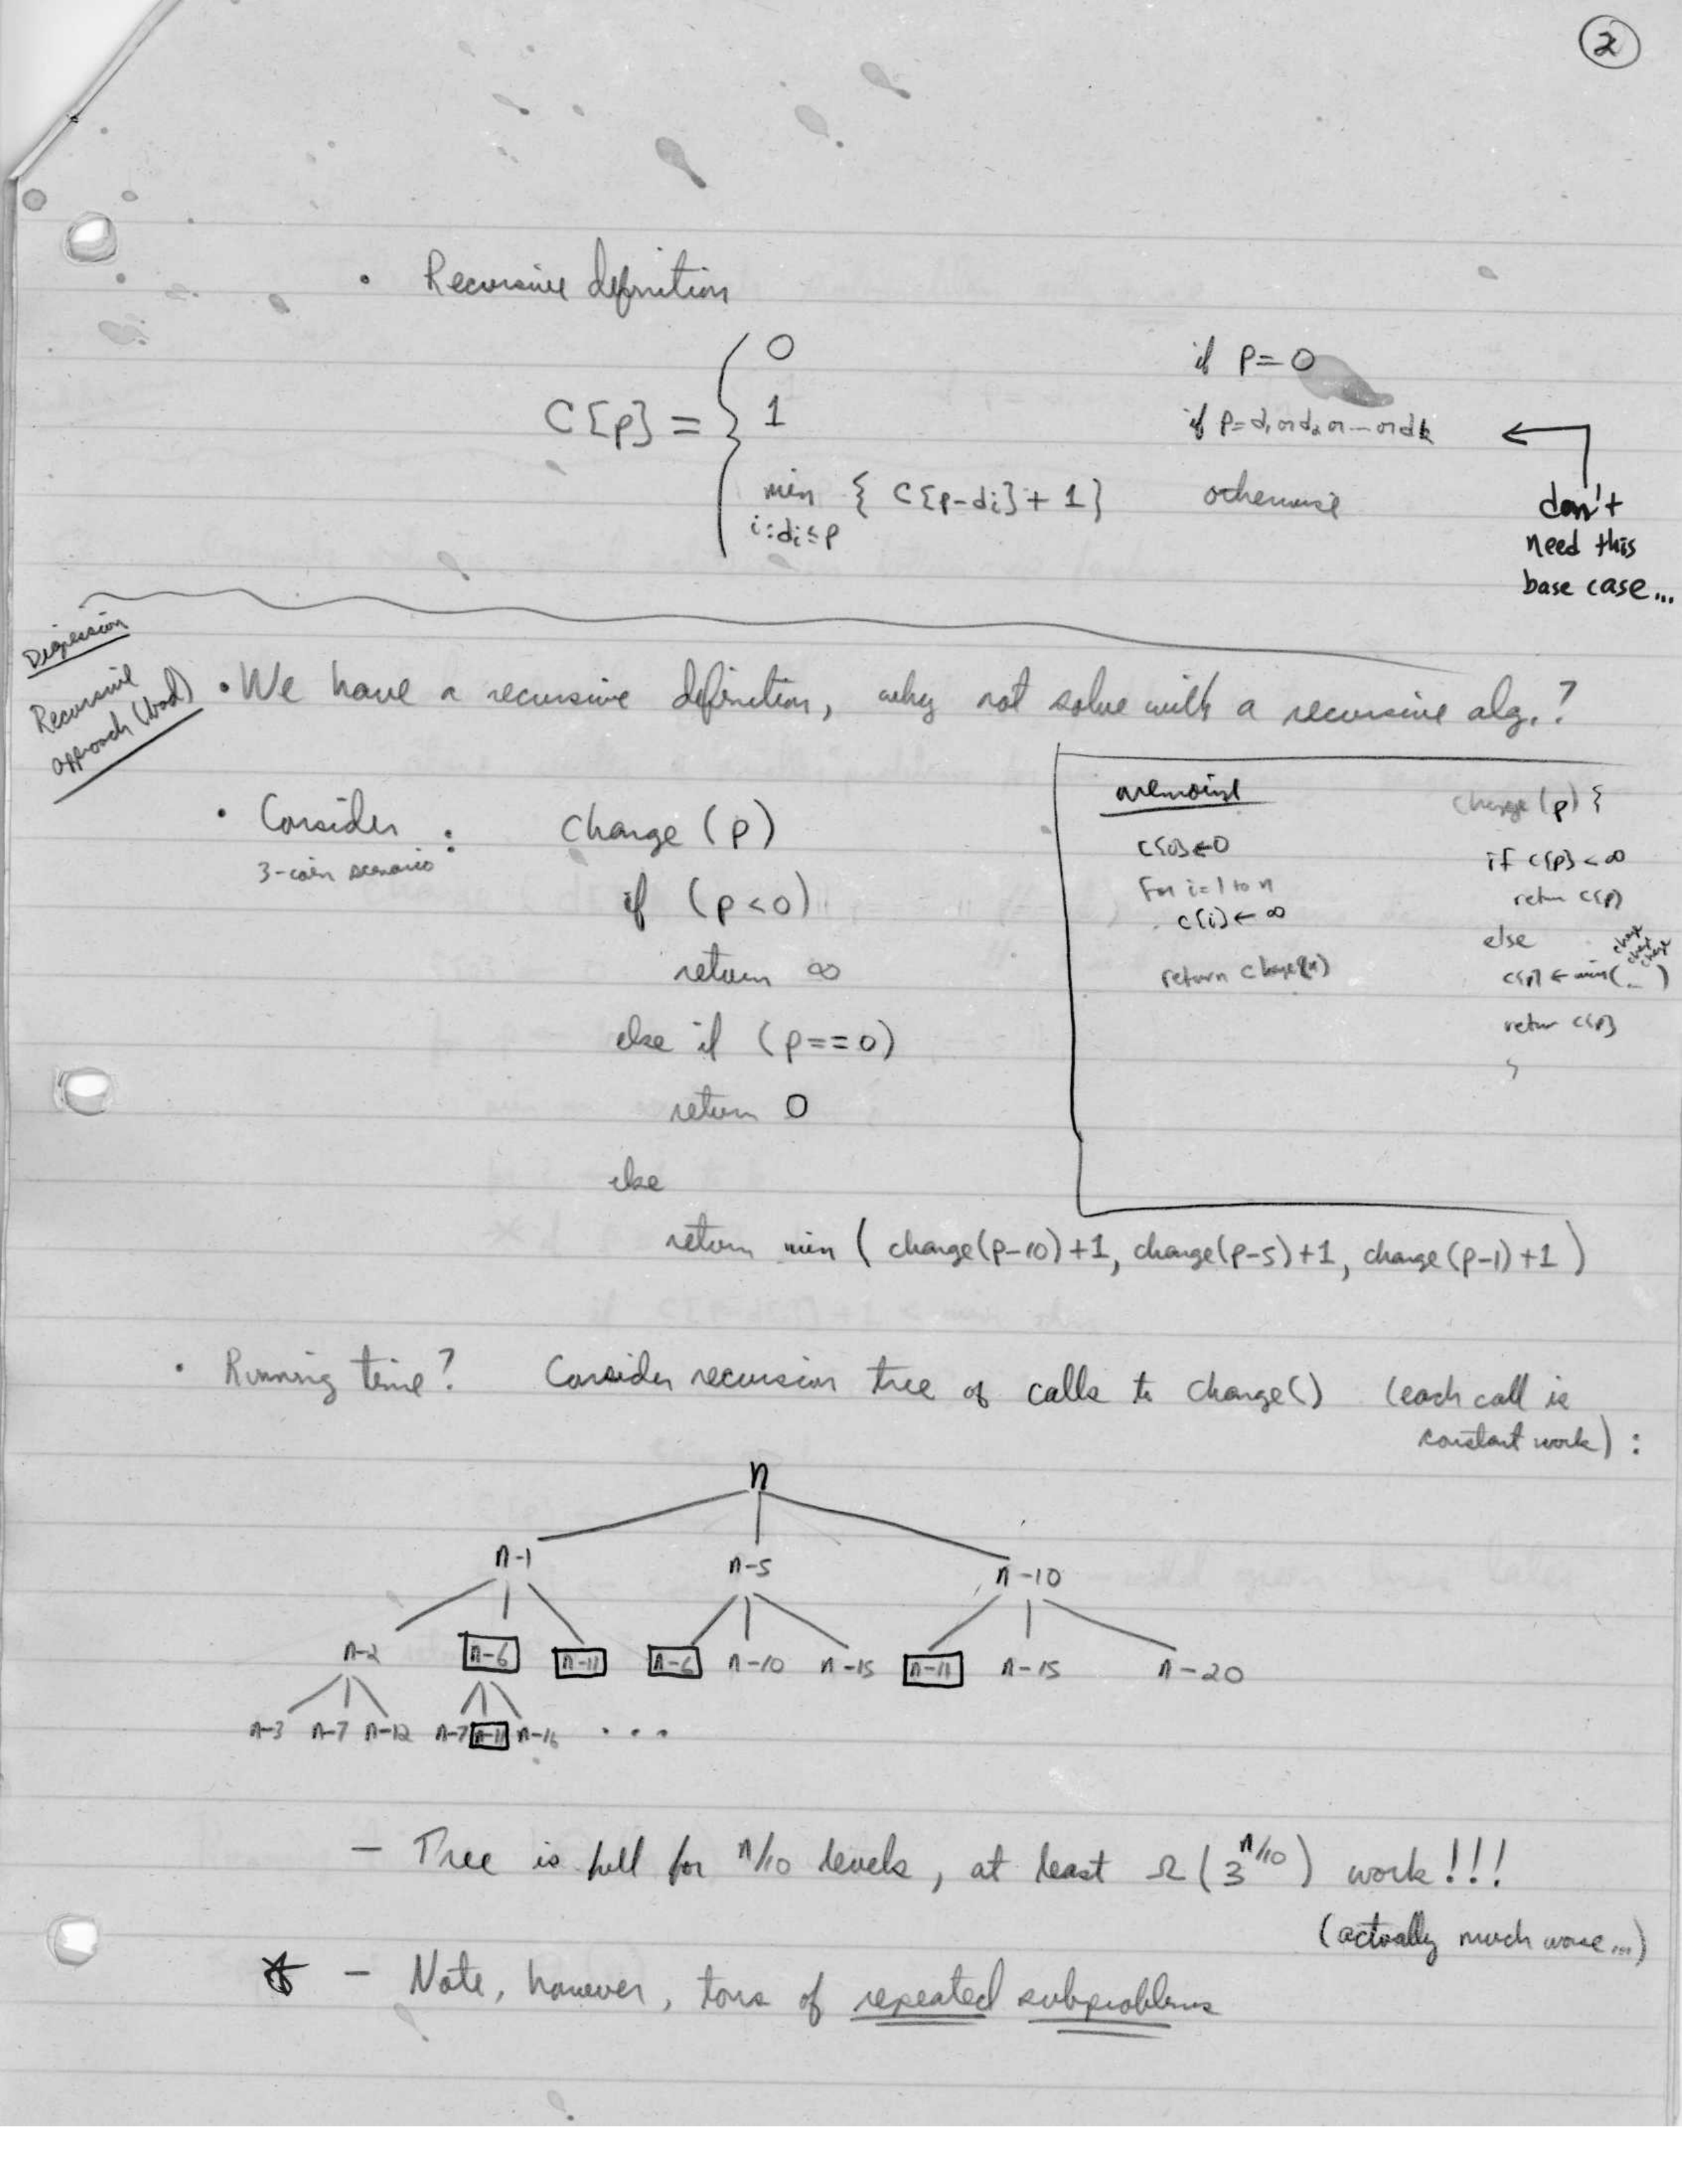 2
• Recursive definition
C[p] = { 0 if p=0
1 if p=d1 or d2 or ... or dk ←
min { C[p-di] + 1 } otherwise
i:di≤p
don't
need this
base case...
Digression
Recursive
approach (bad)
• We have a recursive definition, why not solve with a recursive alg.?
• Consider : change (p)
3-coin scenario
if (p<0)
return ∞
else if (p==0)
return 0
else
return min ( change(p-10)+1, change(p-5)+1, change(p-1)+1 )
memoize
c[0]←0
For i=1 to n
c[i]←∞
return change(n)
change(p) {
if c[p]<∞
return c[p]
else
change
change
change
c[p] ← min(... )
return c[p]
}
• Running time? Consider recursion tree of calls to change() (each call is
constant work) :
n
n-1 n-5 n-10
n-2 n-6 n-11 n-6 n-10 n-15 n-11 n-15 n-20
n-3 n-7 n-12 n-7 n-11 n-16 ...
— Tree is full for n/10 levels, at least Ω(3^n/10) work!!!
(actually much worse...)
☆ — Note, however, tons of repeated subproblems